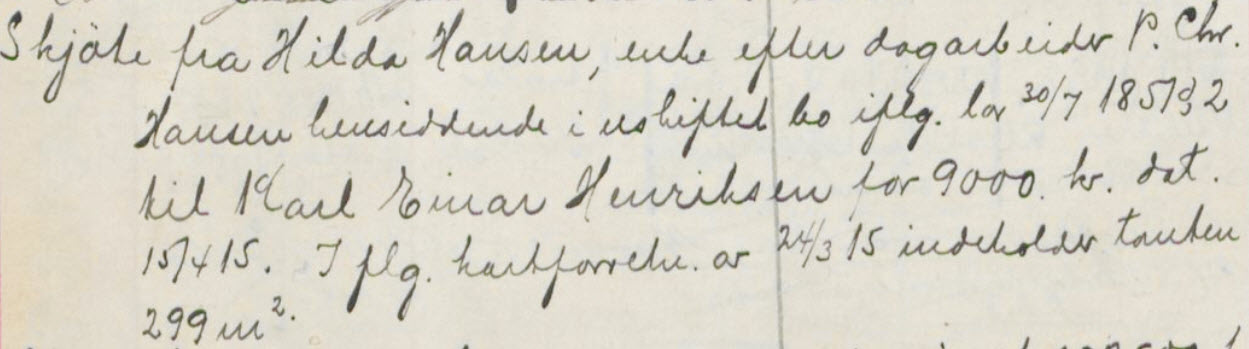 Skjöte fra Hilda Hansen, enke efter dagarbeider P. Chr.
Hansen hensiddende i uskiftet bo iflg. lov 30/7 1851 § 2
til Karl Einar Henriksen for 9000 kr. dat.
15/4 15. Iflg. kartforretn. av 24/3 15 indeholder tomten
299 m².